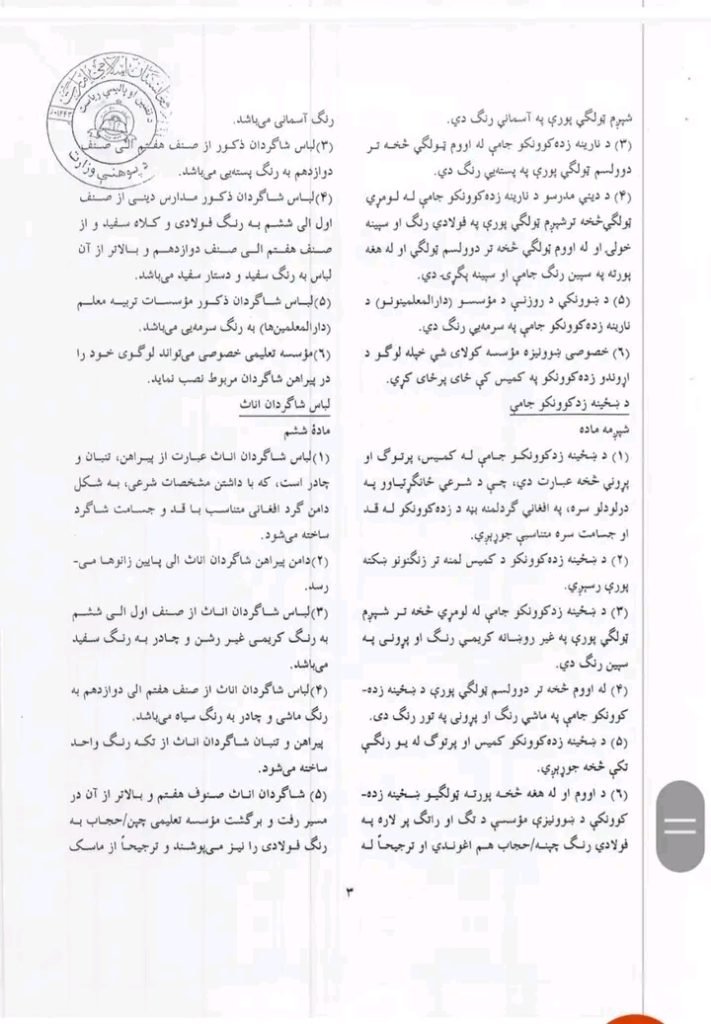 شپږم ټولګي پورې په آسماني رنګ دي.
(۳) د نارينه زده‌کوونکو جامې له اووم ټولګي څخه تر
دوولسم ټولګي پورې په پسته‌يي رنګ دي.
(۴) د ديني مدرسو د نارينه زده‌کوونکو جامې له لومړي
ټولګي‌څخه ترشپږم ټولګي پورې په فولادي رنګ او سپينه
خولۍ او له اووم ټولګي څخه تر دوولسم ټولګي او له هغه
پورته په سپين رنګ جامې او سپينه پګړۍ دي.
(۵) د ښوونکي د روزنې د مؤسسو (دارالمعلمينونو) د
نارينه زده‌کوونکو جامې په سرمه‌يي رنګ دي.
(۶) خصوصي ښوونيزه مؤسسه کولای شي خپله لوګو د
اړوندو زده‌کوونکو په کميس کې ځای پرځای کړي.
د ښځينه زدکوونکو جامې
شپږمه ماده
(۱) د ښځينه زدکوونکو جامې له کميس، پرتوګ او
پړوني څخه عبارت دي، چې د شرعي ځانګړتياوو په
درلودلو سره، په افغاني ګردلمنه بڼه د زده‌کوونکو له قد
او جسامت سره متناسبې جوړيږي.
(۲) د ښځينه زده‌کوونکو د کميس لمنه تر زنګنونو ښکته
پورې رسيږي.
(۳) د ښځينه زدکوونکو جامې له لومړي څخه تر شپږم
ټولګي پورې په غير روښانه کريمي رنګ او پړونی په
سپين رنګ دي.
(۴) له اووم څخه تر دوولسم ټولګي پورې د ښځينه زده-
کوونکو جامې په ماشي رنګ او پړونی په تور رنګ دی.
(۵) د ښځينه زده‌کوونکو کميس او پرتوګ له يو رنګې
تکې څخه جوړيږي.
(۶) د اووم او له هغه څخه پورته ټولګيو ښځينه زده-
کوونکې د ښوونيزې مؤسسې د تګ او راتګ پر لاره په
فولادي رنګ چپنه/حجاب هم اغوندي او ترجيحاً له
رنگ آسمانی می‌باشد.
(۳)لباس شاگردان ذکور از صنف هفتم الی صنف
دوازدهم به رنگ پسته‌یی می‌باشد.
(۴)لباس شاگردان ذکور مدارس دینی از صنف
اول الی ششم به رنگ فولادی و کلاه سفید و از
صنف هفتم الی صنف دوازدهم و بالاتر از آن
لباس به رنگ سفید و دستار سفید می‌باشد.
(۵)لباس شاگردان ذکور مؤسسات تربیه معلم
(دارالمعلمین‌ها) به رنگ سرمه‌یی می‌باشد.
(۶)مؤسسه تعلیمی خصوصی می‌تواند لوگوی خود را
در پیراهن شاگردان مربوط نصب نماید.
لباس شاگردان اناث
مادۀ ششم
(۱)لباس شاگردان اناث عبارت از پیراهن، تنبان و
چادر است، که با داشتن مشخصات شرعی، به شکل
دامن گرد افغانی متناسب با قد و جسامت شاگرد
ساخته می‌شود.
(۲)دامن پیراهن شاگردان اناث الی پایین زانوها می-
رسد.
(۳)لباس شاگردان اناث از صنف اول الی ششم
به رنگ کریمی غیر رشن و چادر به رنگ سفید
می‌باشد.
(۴)لباس شاگردان اناث از صنف هفتم الی دوازدهم به
رنگ ماشی و چادر به رنگ سیاه می‌باشد.
پیراهن و تنبان شاگردان اناث از تکه رنگ واحد
ساخته می‌شود.
(۵) شاگردان اناث صنوف هفتم و بالاتر از آن در
مسیر رفت و برگشت مؤسسه تعلیمی چپن/حجاب به
رنگ فولادی را نیز می‌پوشند و ترجیحاً از ماسک
۳
د پوهنې وزارت